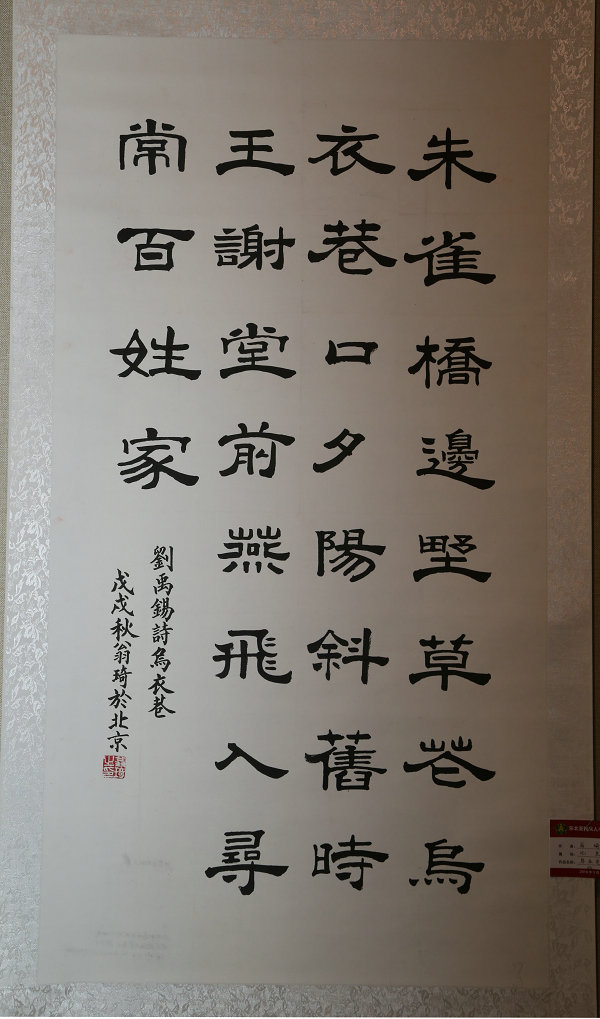 朱雀橋邊野草芲烏
衣巷口夕陽斜舊時
王謝堂前燕飛入尋
常百姓家
劉禹錫詩烏衣巷
戊戌秋翁琦於北京